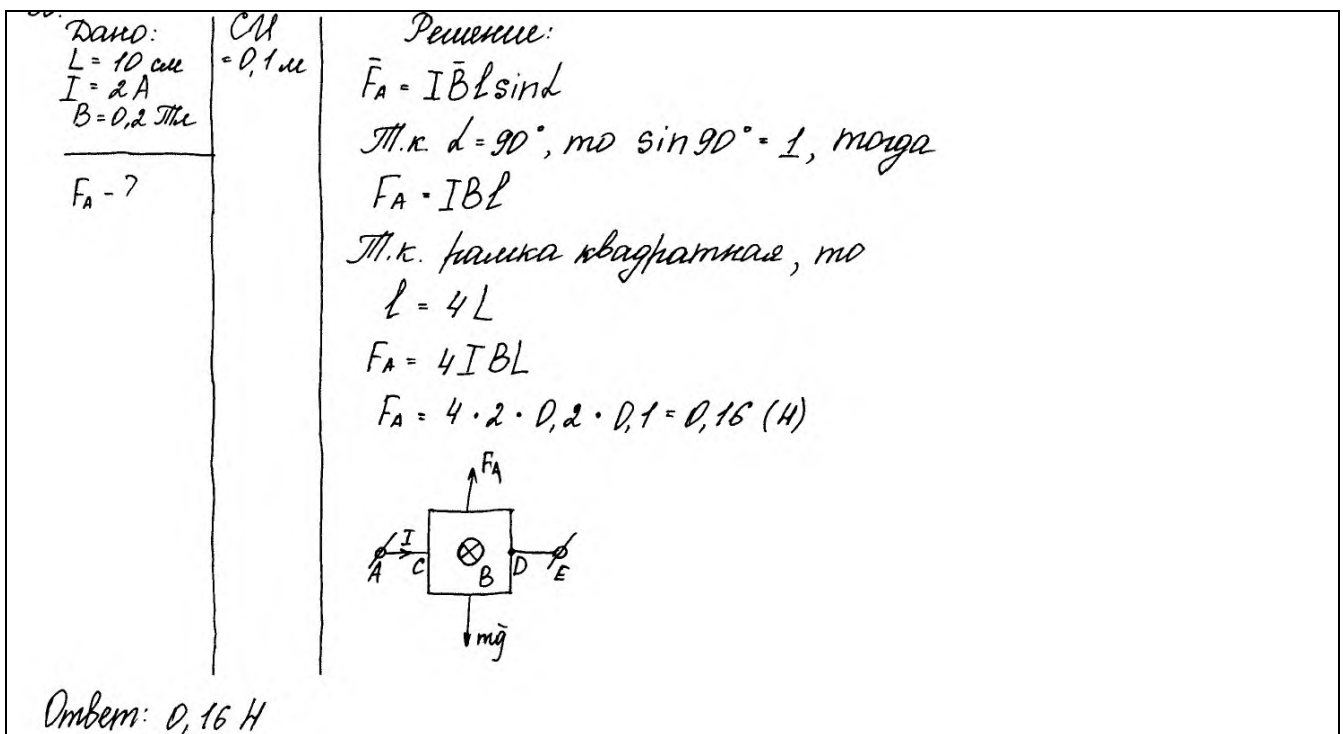 Дано:
L = 10 см
I = 2 А
B = 0,2 Тл
F_A - ?
СИ
= 0,1 м
Решение:
F̄_A = I B̄ l sin α
Т.к. α = 90°, то sin 90° = 1, тогда
F_A = I B l
Т.к. рамка квадратная, то
l = 4 L
F_A = 4 I B L
F_A = 4 · 2 · 0,2 · 0,1 = 0,16 (Н)
F_A
I
A C B D E
mḡ
Ответ: 0,16 Н